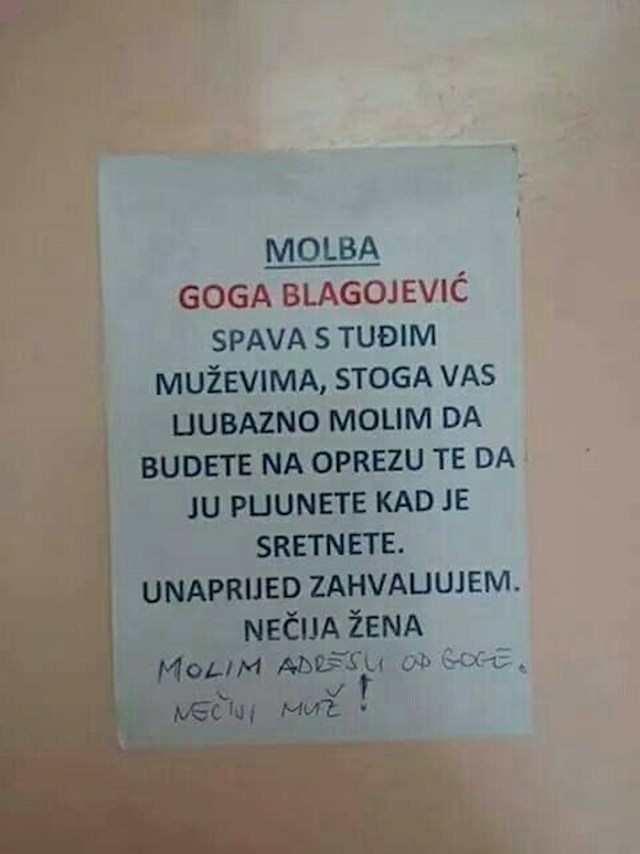 MOLBA
GOGA BLAGOJEVIĆ
SPAVA S TUĐIM
MUŽEVIMA, STOGA VAS
LJUBAZNO MOLIM DA
BUDETE NA OPREZU TE DA
JU PLJUNETE KAD JE
SRETNETE.
UNAPRIJED ZAHVALJUJEM.
NEČIJA ŽENA
MOLIM ADRESU OD GOGE.
NEČIJI MUŽ!